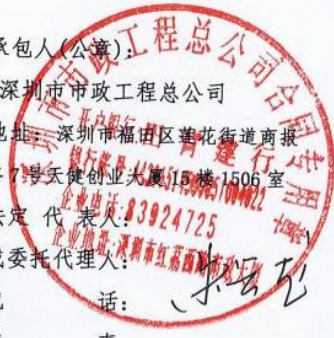 承包人(公章):
深圳市市政工程总公司
地址: 深圳市福田区莲花街道商报
路7号天健创业大厦15楼1506室
法定代表人:
或委托代理人:
话:
深圳市市政工程总公司合同专用章
开户银行:
企业电话:83924725
企业地址:深圳市红荔西路